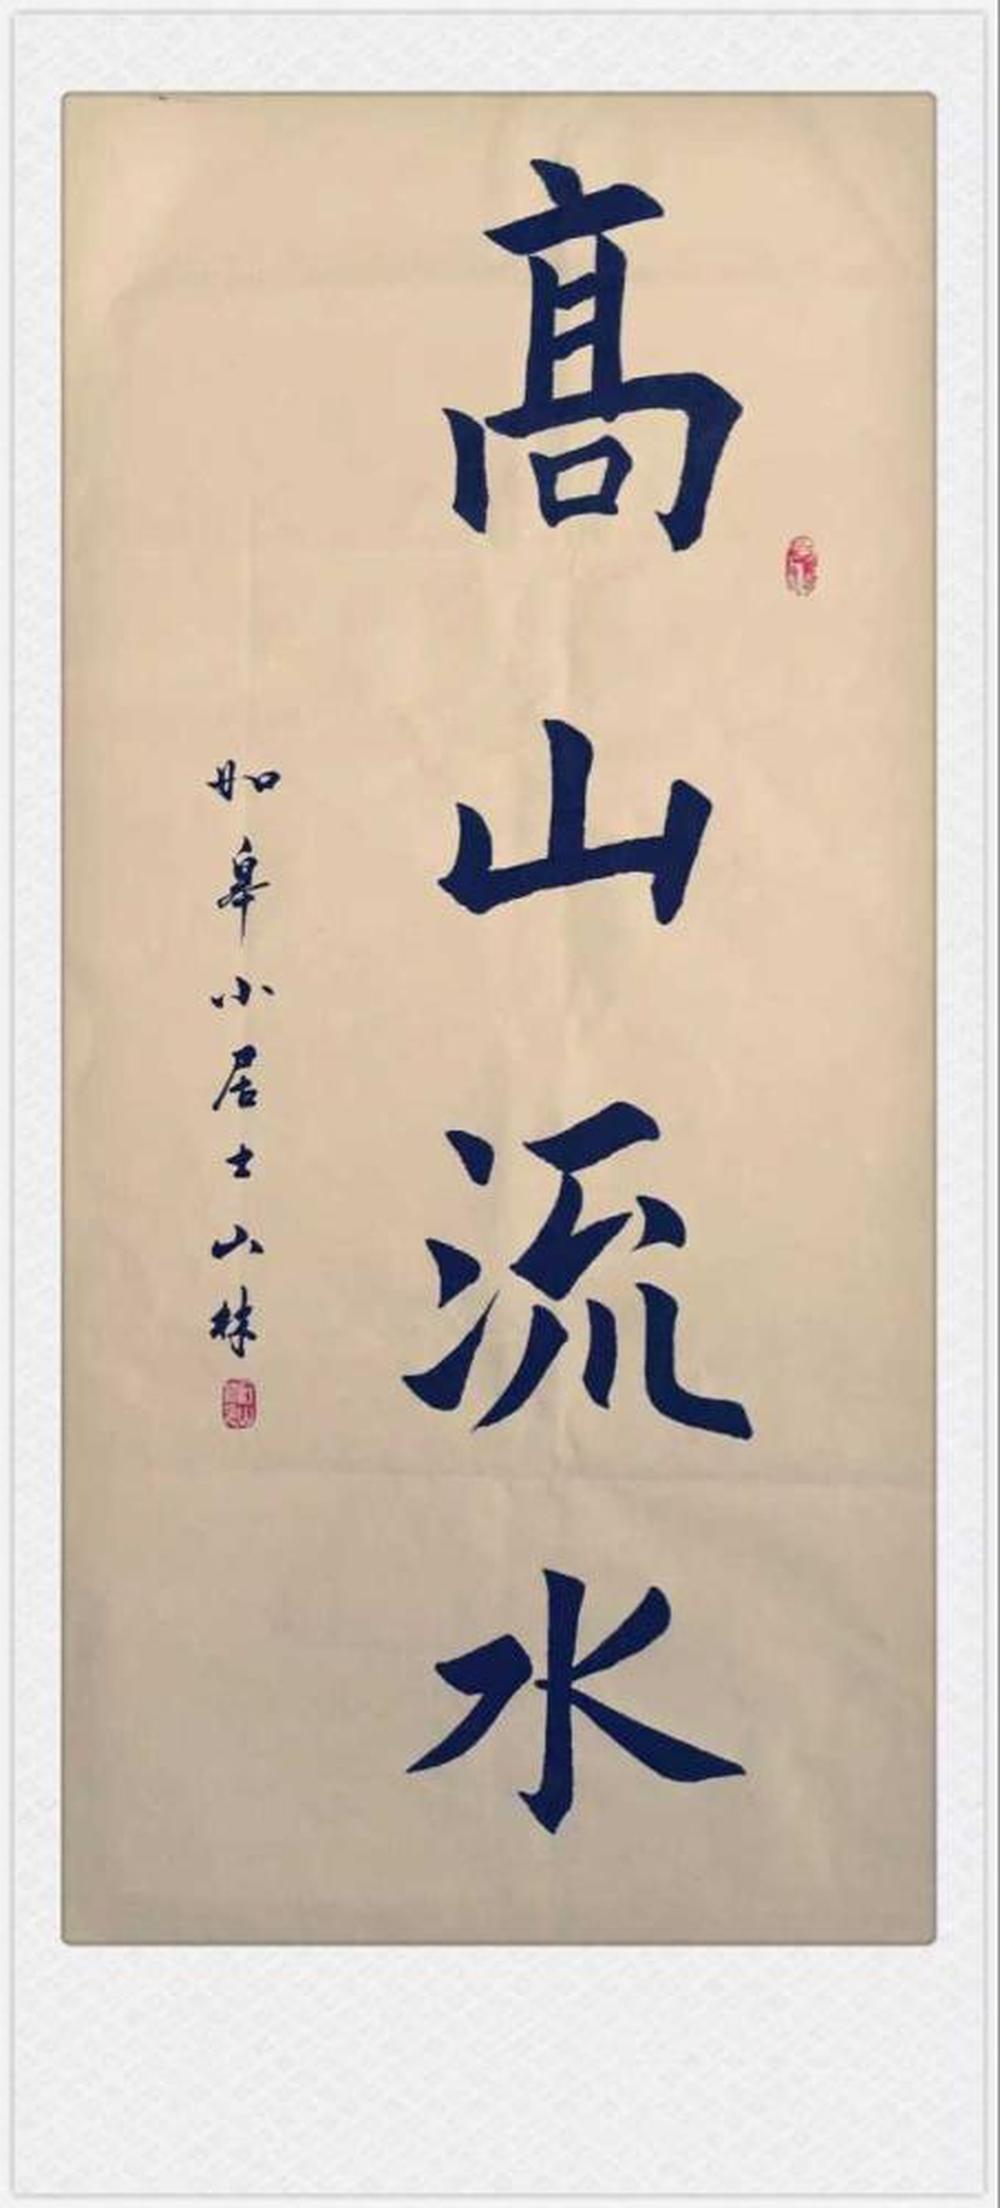 髙山流水
如皋小居士山林